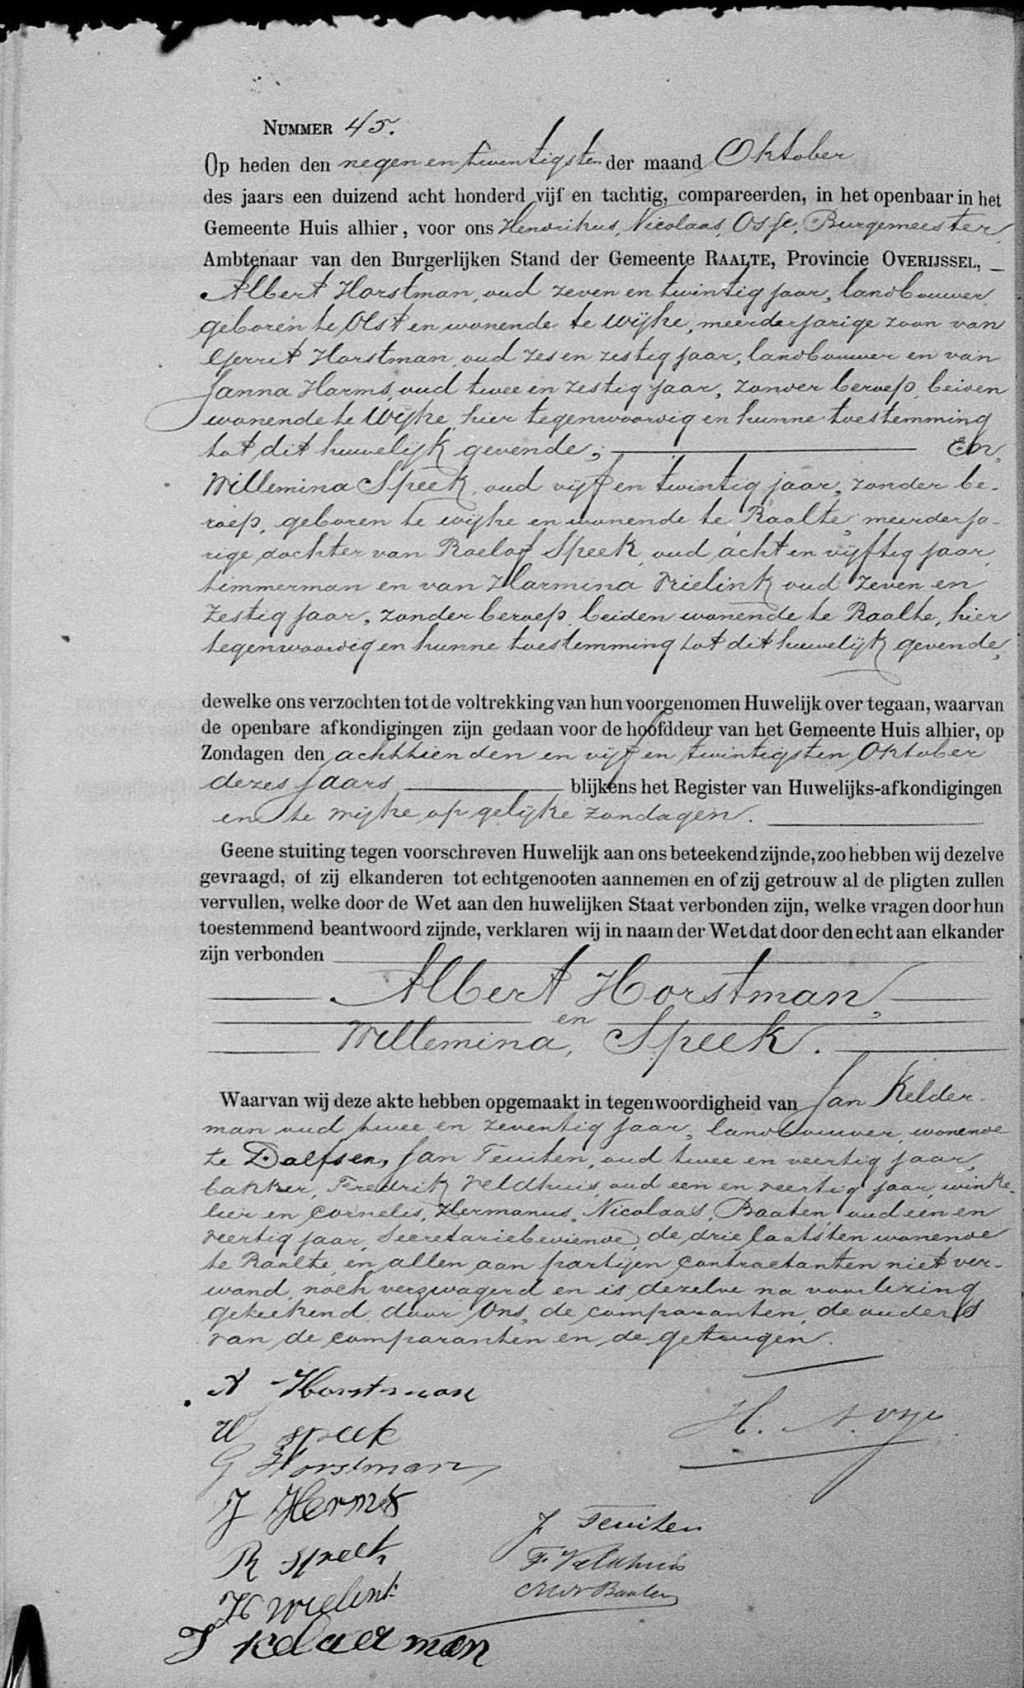 NUMMER 45.
Op heden den negen en twintigsten der maand Oktober
des jaars een duizend acht honderd vijf en tachtig, compareerden, in het openbaar in het
Gemeente Huis alhier, voor ons Hendrikus, Nicolaas, Osse, Burgemeester,
Ambtenaar van den Burgerlijken Stand der Gemeente RAALTE, Provincie OVERIJSSEL,
Albert Horstman, oud zeven en twintig jaar, landbouwer,
geboren te Olst en wonende te Wijhe, meerderjarige zoon van
Gerrit Horstman oud zes en zestig jaar, landbouwer en van
Janna Harms, oud twee en zestig jaar, zonder beroep, beiden
wonende te Wijhe, hier tegenwoordig en hunne toestemming
tot dit huwelijk gevende; En,
Willemina Speek, oud vijf en twintig jaar, zonder be-
roep, geboren te Wijhe en wonende te Raalte, meerderja-
rige dochter van Roelof Speek, oud acht en vijftig jaar,
timmerman en van Harmina Vrielink oud zeven en
zestig jaar, zonder beroep, beiden wonende te Raalte, hier
tegenwoordig en hunne toestemming tot dit huwelijk gevende,
dewelke ons verzochten tot de voltrekking van hun voorgenomen Huwelijk over tegaan, waarvan
de openbare afkondigingen zijn gedaan voor de hoofddeur van het Gemeente Huis alhier, op
Zondagen den achttienden en vijf en twintigsten Oktober
dezes jaars blijkens het Register van Huwelijks-afkondigingen
en te Wijhe op gelijke zondagen.
Geene stuiting tegen voorschreven Huwelijk aan ons beteekend zijnde, zoo hebben wij dezelve
gevraagd, of zij elkanderen tot echtgenooten aannemen en of zij getrouw al de pligten zullen
vervullen, welke door de Wet aan den huwelijken Staat verbonden zijn, welke vragen door hun
toestemmend beantwoord zijnde, verklaren wij in naam der Wet dat door den echt aan elkander
zijn verbonden
Albert Horstman,
en
Willemina, Speek.
Waarvan wij deze akte hebben opgemaakt in tegenwoordigheid van Jan Kelder-
man oud twee en zeventig jaar, landbouwer, wonende
te Dalfsen, Jan Teuiten, oud twee en veertig jaar,
bakker, Fredrik Veldhuis, oud een en veertig jaar, winke-
lier en Cornelis, Hermanus, Nicolaas, Baaten oud een en
veertig jaar, Secretariebediende, de drie laatsten wonende
te Raalte, en allen aan partijen Contractanten niet ver-
wand, noch verzwagerd en is dezelve na voorlezing
geteekend door Ons, de comparanten, de ouders
van de comparanten en de getuigen.
A Horstman
W speek
G Horstman
J Herms
R speek
H Vrielink
J kelderman
H. N. Osse
J Teuiten
F. Veldhuis
CHN Baaten